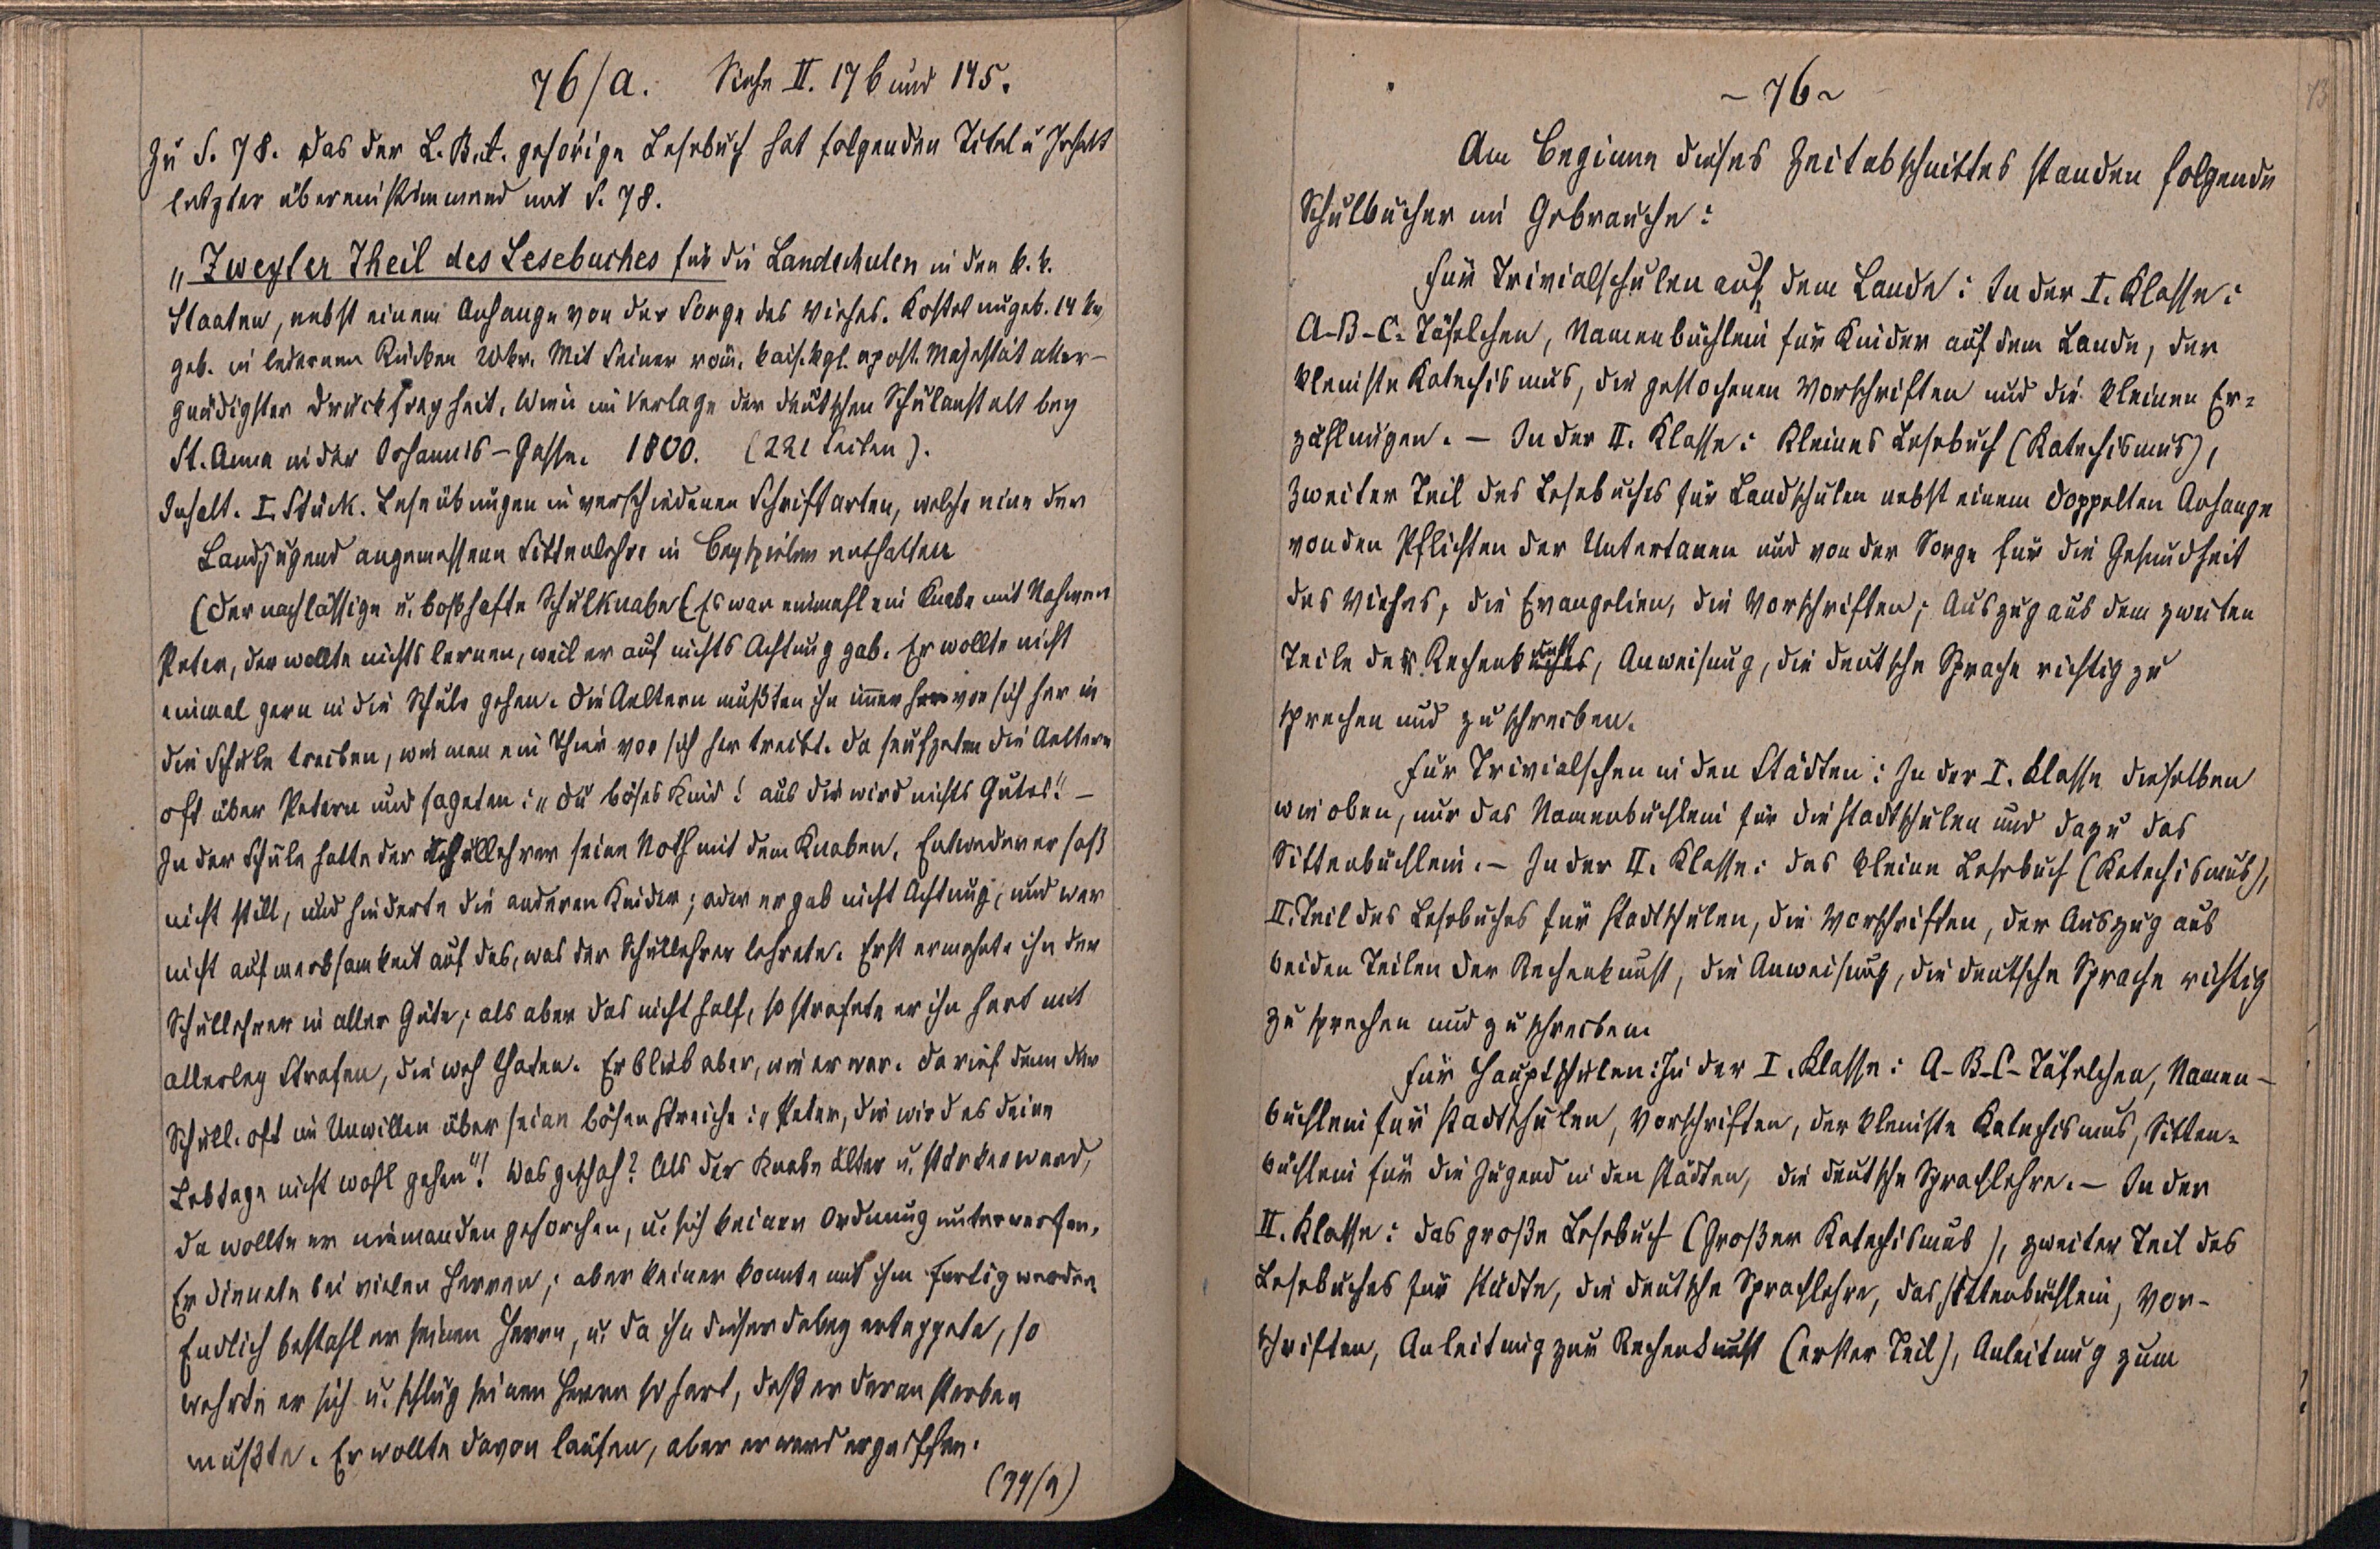 76/a. Siehe II. 176 und 175.
Zu S. 78. Das der L. B. A. gehörige Lesebuch hat folgenden Titel u Inhalt
letzter übereinstimmend mit S. 78.
„Zweyter Theil des Lesebuches für die Landschulen in den k. k.
Staaten, nebst einem Anhange von der Sorge des Viehes. Kostet ungeb. 14 kr,
geb. in ledernem Rücken 20kr. Mit Seiner röm. kais. kgl. apost. Majestät aller-
gnädigster Druckfreyheit. Wien im Verlage der deutschen Schulanstalt bey
St. Anna in der Johannis-Gasse. 1800. (221 Seiten).
Inhalt. I. Stück. Leseübungen in verschiedenen Schriftarten, welche eine der
Landjugend angemessene Sittenlehre in Beyspielen enthalten
(Der nachlässige u. boßhafte Schulknabe (Es war einmahl ein Knabe mit Nahmen
Peter, der wollte nichts lernen, weil er auf nichts Achtung gab. Er wollte nicht
einmal gern in die Schule gehen. Die Aeltern mußten ihn immer her vor sich her in
die Schule treiben, wie man ein Thier vor sich her treibt. Da seufzeten die Aeltern
oft über Petern und sageten: „Du böses Kind! aus dir wird nichts Gutes!“ –
In der Schule hatte der Schullehrer seine Noth mit dem Knaben. Entweder er saß
nicht still, und hinderte die anderen Kinder; oder er gab nicht Achtung, und war
nicht aufmerksamkeit auf das, was der Schullehrer lehrete. Erst ermahnte ihn der
Schullehrer in aller Güte; als aber das nicht half, so strafete er ihn hart mit
allerley Strafen, die weh thaten. Er blieb aber, wie er war. Da rief denn der
Schull. oft im Unwillen über seine bösen Streiche: „Peter, dir wird es deine
Lebtage nicht wohl gehen“! Was geschah? Als der Knabe älter u. stärker ward,
da wollte er niemanden gehorchen, u. sich keiner Ordnung unterwerfen.
Er dienete bei vielen Herren; aber keiner konnte mit ihm fertig werden.
Endlich bestahl er seinen Herrn, u. da ihn dieser dabey ertappete, so
wehrte er sich u. schlug seinen Herrn so hart, daß er daran sterben
mußte. Er wollte davon laufen, aber er ward ergriffen.
(77/a)
– 76 ~
73
Am Beginne dieses Zeitabschnittes standen folgende
Schulbücher im Gebrauche:
Für Trivialschulen auf dem Lande: In der I. Klasse:
A-B-C-Täfelchen, Namenbüchlein für Kinder auf dem Lande, der
kleinste Katechismus, die gestochenen Vorschriften und die kleinen Er-
zählungen. – In der II. Klasse: Kleines Lesebuch (Katechismus),
Zweiter Teil des Lesebuches für Landschulen nebst einem doppelten Anhange
von den Pflichten der Untertanen und von der Sorge für die Gesundheit
des Viehes, die Evangelien, die Vorschriften; Auszug aus dem zweiten
Teile der Rechenkunst, Anweisung, die deutsche Sprache richtig zu
sprechen und zu schreiben.
Für Trivialschen in den Städten: In der I. Klasse dieselben
wie oben, nur das Namenbüchlein für die Stadtschulen und dazu das
Sittenbüchlein. – In der II. Klasse: das kleine Lesebuch (Katechismus),
II. Teil des Lesebuches für Stadtschulen, die Vorschriften, der Auszug aus
beiden Teilen der Rechenkunst, die Anweisung, die deutsche Sprache richtig
zu sprechen und zu schreiben.
Für Hauptschulen: In der I. Klasse: A-B-C-Täfelchen, Namen-
büchlein für Stadtschulen, Vorschriften, der kleinste Katechismus, Sitten-
büchlein für die Jugend in den Städten, die deutsche Sprachlehre. – In der
II. Klasse: das große Lesebuch (Großer Katechismus), zweiter Teil des
Lesebuches für Städte, die deutsche Sprachlehre, das Sittenbüchlein, Vor-
schriften, Anleitung zur Rechenkunst (erster Teil), Anleitung zum